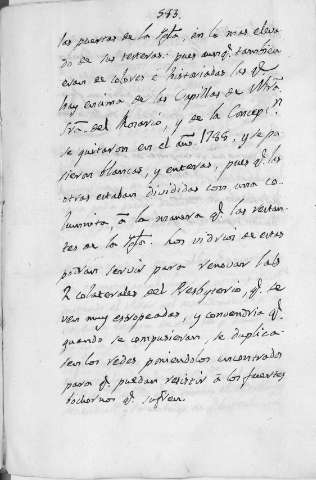 543.
las puertas de la Ygla, en lo mas eleva
do de sus testeras: pues aunq.e tambien
eran de colores e historiadas las q.e
hay encima de las Capillas de Ntra
Sra. del Rosario, y de la Concepn
se quitaron en el año 1788, y se pu
sieron blancas, y enteras, pues q.e las
otras estaban divididas con una co
lumnita, â la manera q.e las restan
tes de la Ygla. Los vidrios de estas
podrán servir para renovar las
2 colaterales del Presbyterio, q.e se
ven muy estropeadas, y convendría q.e
quando se compusieran, se duplica
sen los redes poniendolos encontrados
para q.e puedan resistir â los fuertes
bochornos q.e sufren.